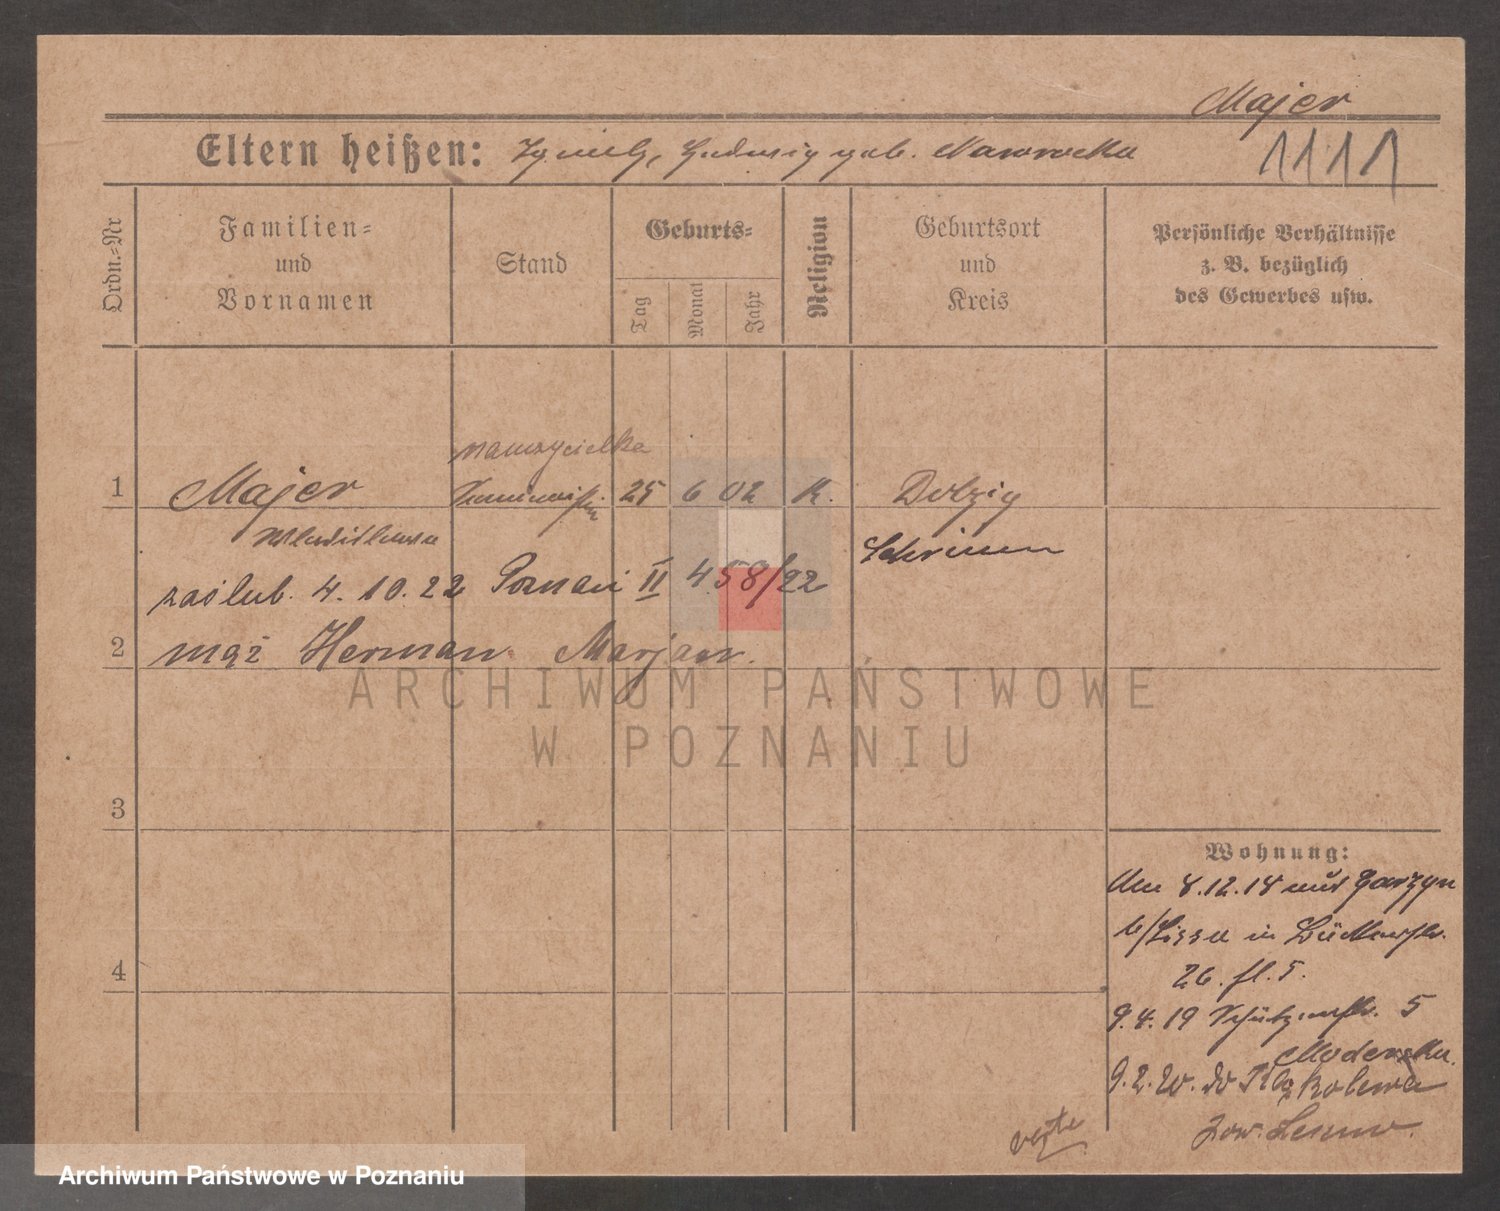 Majer
1111
Eltern heißen: Ignatz, Hedwig geb. Nawrocka
Ordn.-Nr
Familien-
und
Vornamen
Stand
Geburts-
Tag
Monat
Jahr
Religion
Geburtsort
und
Kreis
Persönliche Verhältnisse
z. B. bezüglich
des Gewerbes usw.
nauczycielka
1 Majer 25 6 02 K. Dolzig
Wladislawa Schrimm
zaślub. 4. 10. 22 Poznań II 458/22
2 mąż Herman Marjan.
ARCHIWUM PAŃSTWOWE
W POZNANIU
3
4
Wohnung:
Am 8.12.18 aus Garzyn
b/Lissa in
26. fl. 5.
9.4.19 Schützenstr. 5
9.2.20. do
pow. Leszno.
Archiwum Państwowe w Poznaniu